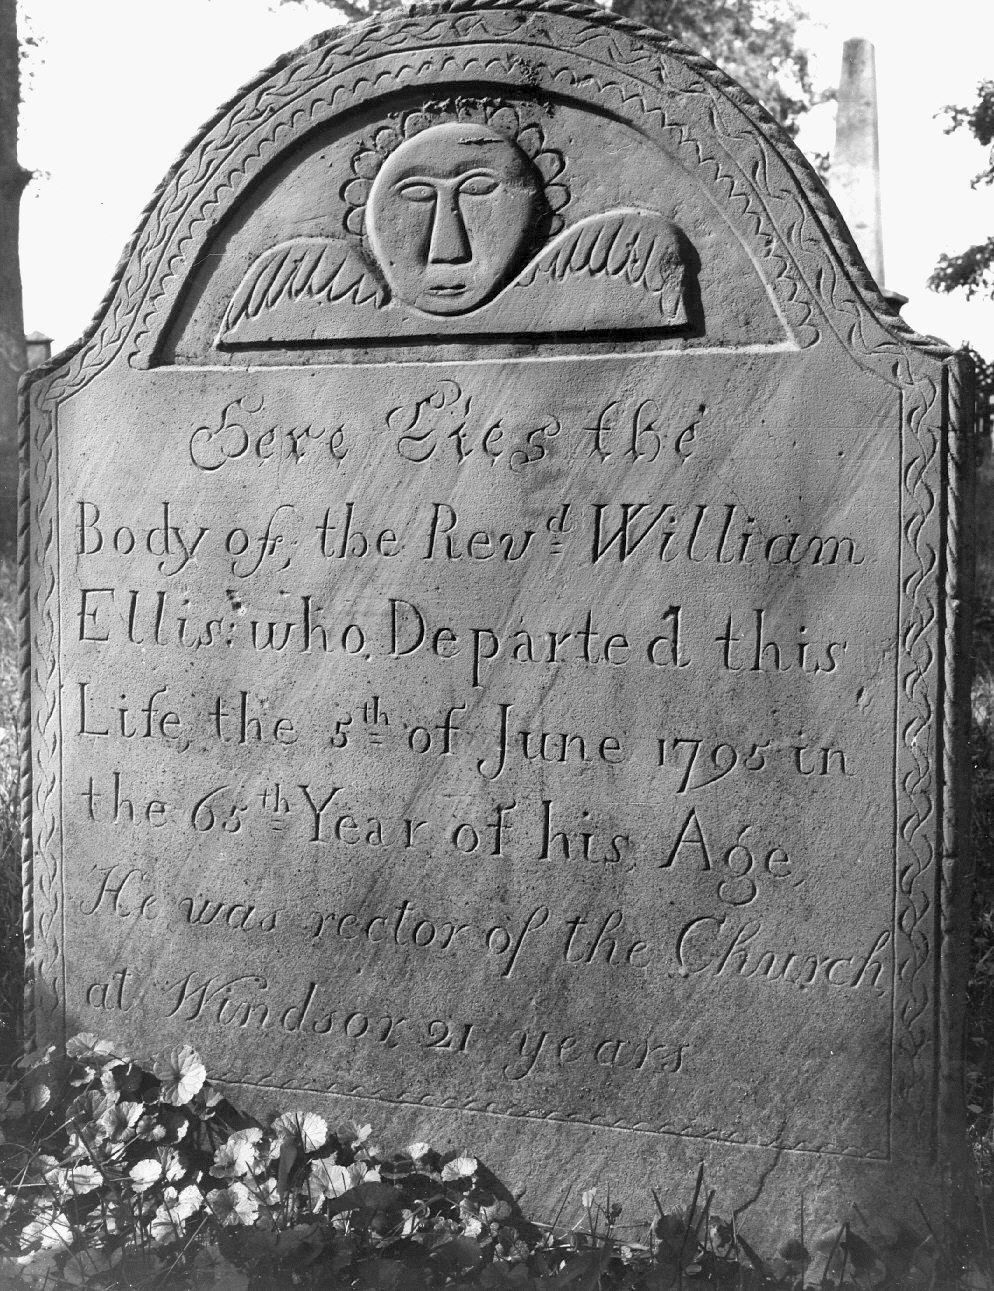 Here Lies the
Body of the Revd William
Ellis: who, Departed this
Life, the 5th of June 1795 in
the 65th Year of his Age
He was rector of the Church
at Windsor 21 years